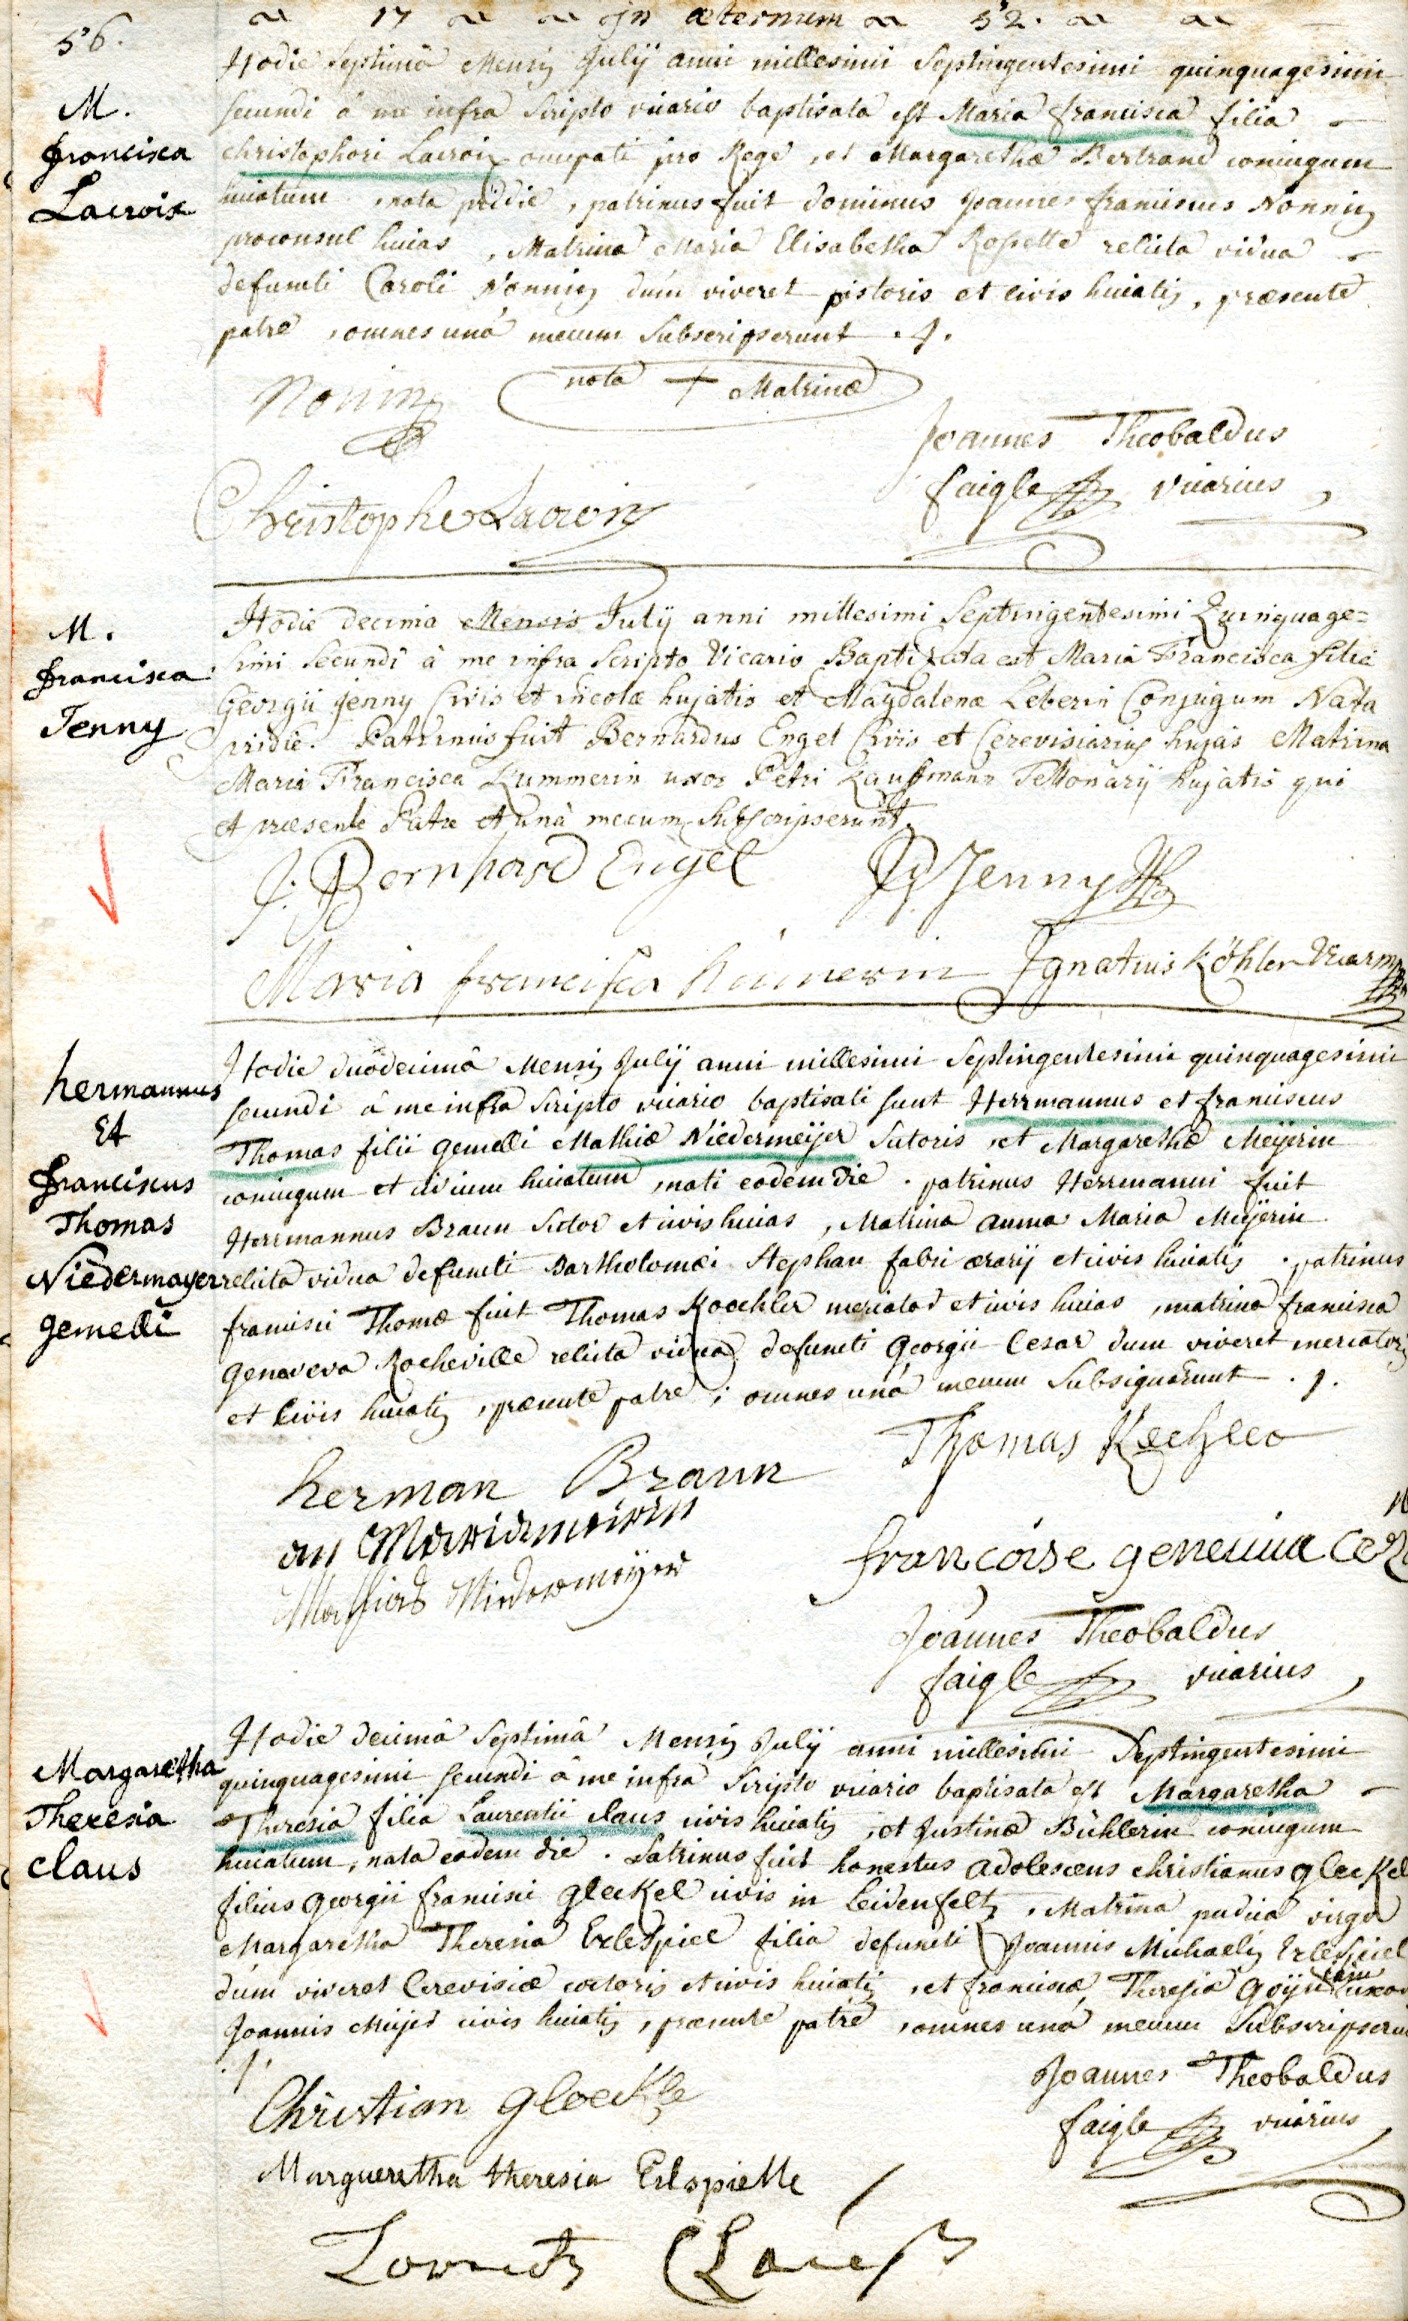 56.
17 In æternum 52.
M.
francisca
Lacroix
Hodie Septimâ Mensis Julÿ anni millesimi Septingentesimi quinquagesimi
secundi â me infra Scripto vicario baptisata est Maria francisca filia
christophori Lacroix occupati pro Rege, et Margarethæ Bertrand coniugum
huiatum, nata pridie, patrinus fuit dominus Joannes franciscus Nonnig
proconsul huias, Matrina Maria Elisabetha Rossette relicta vidua
defuncti Caroli Nonnig dum viveret pistoris et civis huiatis, præsente
patre, omnes unâ mecum Subscripserunt ./.
nota + Matrinæ
Joannes Theobaldus
faigle vicarius
Christophe Lacroix
M.
francisca
Jenny
Hodie decima Mensis Julÿ anni millesimi Septingentesimi Quinquage=
simi secundi â me infra Scripto Vicario Baptizata est Maria Francisca filia
Georgii Jenny Civis et incolæ hujatis et Magdalenæ Leberin Conjugum Nata
pridie. Patrinus fuit Bernardus Engel Civis et Cerevisiarius hujas Matrina
Maria Francisca Kummerin uxor Petri Kauffmann Telonarÿ hujatis qui
et præsente Patre et unà mecum Subscripserunt.
J. Bernhard Engel
Jenny
Maria francisca
Ignatius Köhler Vicarius
hermannus
Et
franciscus
Thomas
Niedermayer
gemelli
Hodie duodecimâ Mensis Julÿ anni millesimi Septingentesimi quinquagesimi
secundi â me infra Scripto vicario baptisati sunt Herrmannus et franciscus
Thomas filii gemelli Mathiæ Niedermeÿer Sutoris, et Margarethæ Meÿerin
coniugum et civium huiatum, nati eodem die. patrinus Herrmanni fuit
Herrmannus Braun Sutor et civis huias, Matrina anna Maria Meÿerin
relicta vidua defuncti Bartholomæi Stephan fabri ærarÿ et civis huiatis. patrinus
francisci Thomæ fuit Thomas Koechler mercator et civis huias, matrina francisca
genoveva Rocheville relicta vidua defuncti georgii Cesar dum viveret mercatoris
et civis huiatis, præsente patre; omnes unâ mecum Subsignârunt ./.
Thomas Kechler
herman Braun
françoise genevieve
Joannes Theobaldus
faigle vicarius
Margaretha
Theresia
claus
Hodie decimâ Septimâ Mensis Julÿ anni millesimi Septingentesimi
quinquagesimi secundi â me infra Scripto vicario baptisata est Margaretha
Theresia filia Laurentii claus civis huiatis, et Justinæ Bühlerin coniugum
huiatum, nata eodem die. Patrinus fuit honestus adolescens christianus gleckel
filius georgii francisci gleckel civis in Leidenfeltz, Matrina pudica virgo
Margaretha Theresia Erlespiel filia defuncti Joannis Michaelis Erlespiel
dum viveret Cerevisiæ coctoris et civis huiatis, et franciscæ Theresiæ
Joannis Meÿer civis huiatis, præsente patre, omnes unâ mecum Subscripserunt
./.
Joannes Theobaldus
faigle vicarius
Christian gloeckle
Margueretha theresia Erlspielle
Lorentz Clauß